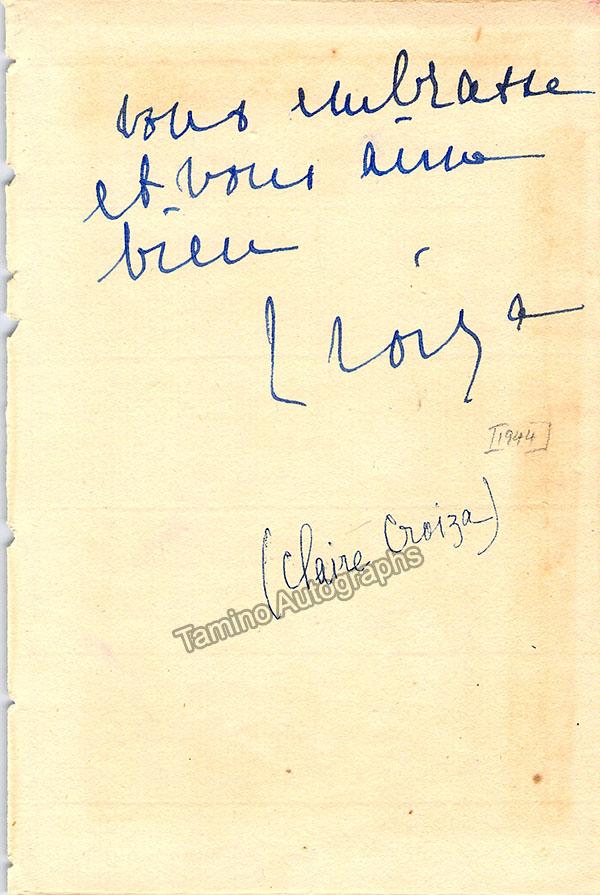 vous embrasse
et vous aime
bien
Croiza
[1944]
(Claire Croiza)
Tamino Autographs